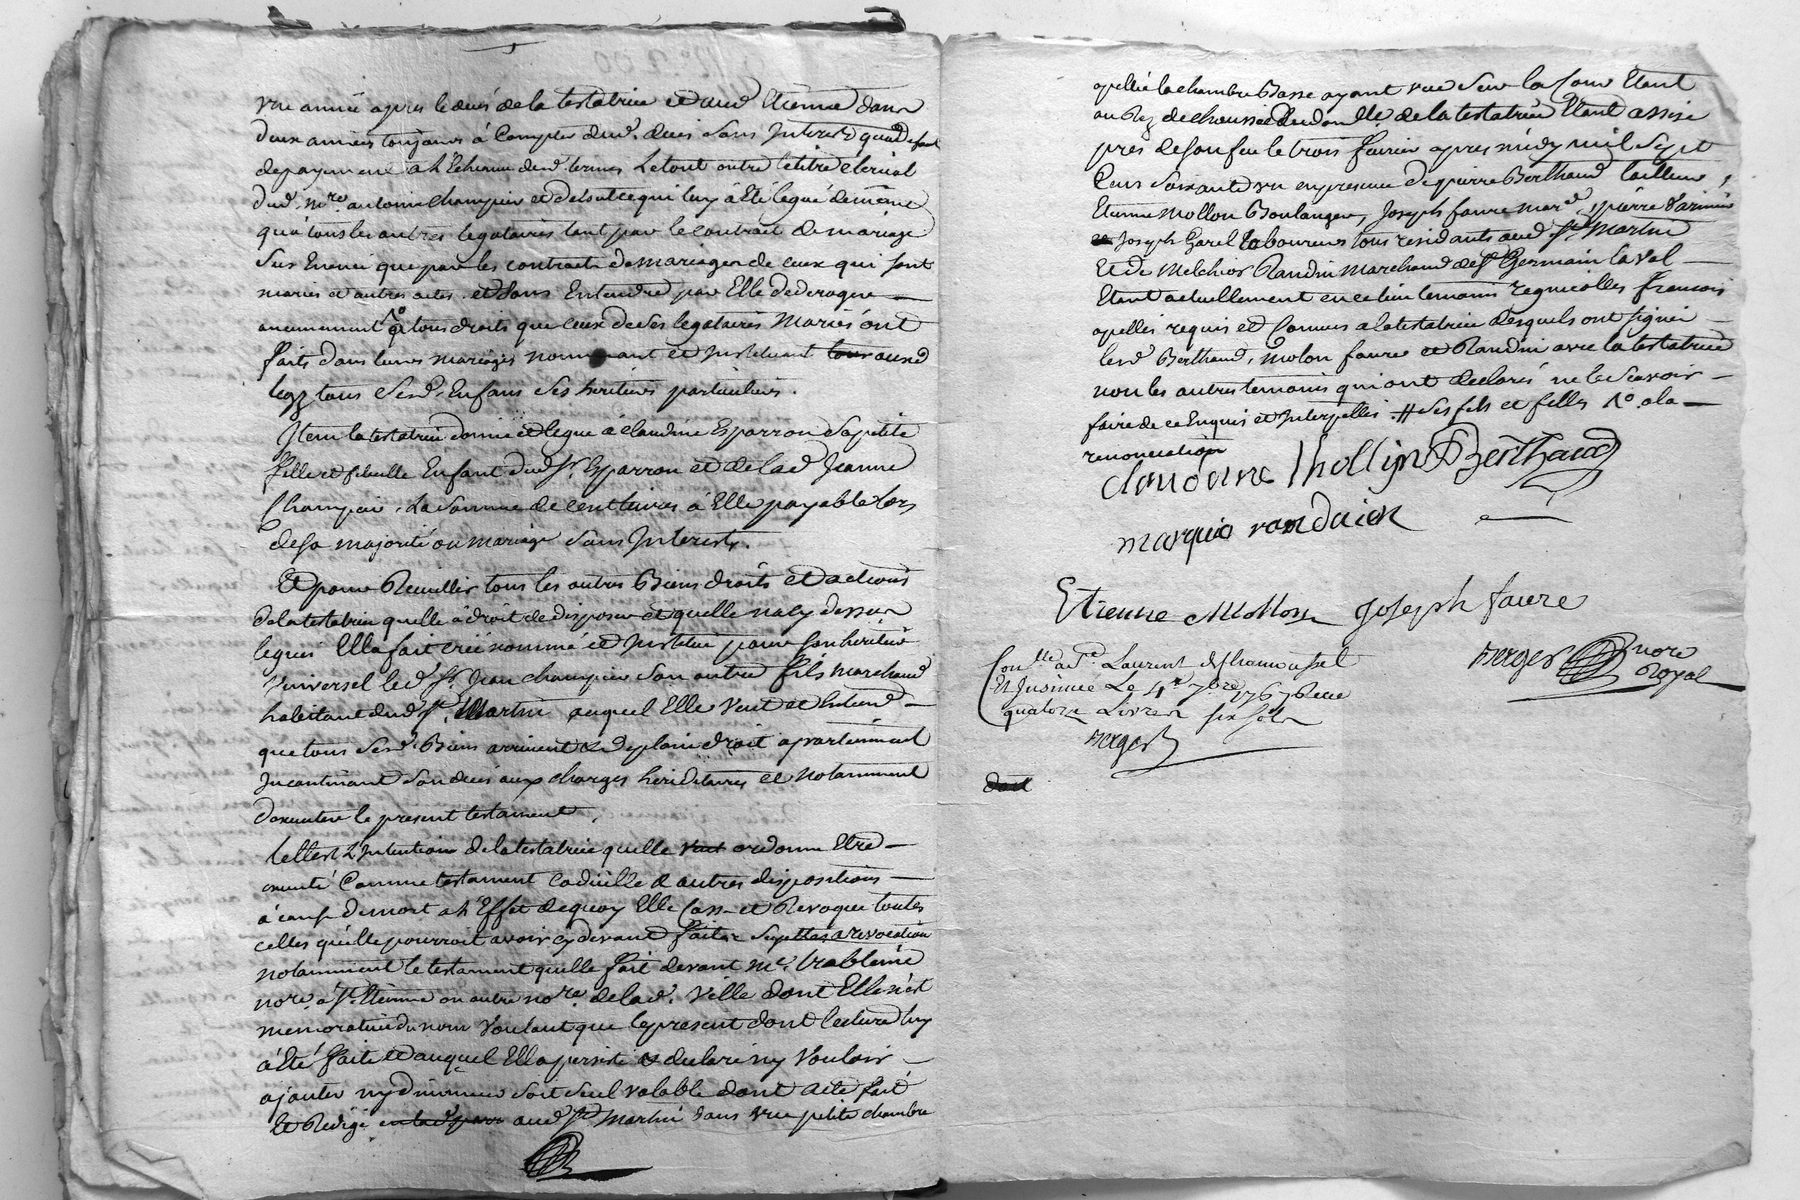 une année apres le deces de la testatrice et aud. Etienne dans
deux années toujours à Compter dud. deces sans Interest qu'a defaut
de payement a l'Echeance desd. termes Le tout outre le titre clerical
dud. Mre. antoine champier et de tout ce qui luy à Eté legué de même
qu'à tous les autres legataires tant par le contrat de mariage
que par les contrats de mariages de ceux qui sont
mariés et autres actes et sans Entendre par Elle deroger
aucunement tous droits que ceux de ses legataires Mariés ont
faits dans leurs mariages nommant et Instituant auxd
legs tous sesd. Enfans ses heritiers particuliers.
Item la testatrice donne et legue à claudine Esparron sa petite
fille et filleulle Enfant dud. Sr. Esparron et de lad. Jeanne
Champier, La somme de cent livres à Elle payable lors
de sa majorité ou mariage sans Interests.
Et pour Recueillir tous les autres Biens droits et actions
de la testatrice quelle à droit de disposer et quelle na cy dessus
legués Elle a fait créé nommé et Institué pour son heritier
Universel led. Sr. Jean champier son autre fils marchand
habitant dud. St. Martin auquel Elle Veut et Entend
que tous sesd. Biens arrivent & de plain droit apartiennent
Incontinant son deces aux charges hereditaires et Notamment
dexecuter le present testament.
telle est L'Intention de la testatrice quelle veut ordonne Etre
executé Comme testament codicille & autres dispositions
à cause de mort a l'Effet de quoy Elle Casse et Revoque toutes
celles qu'elle pourroit avoir cy devant faites
notamment le testament quelle a fait devant Me.
nore. à St. Etienne ou autre nore. de lad. Ville dont Elle n'est
memorative du nom Voulant que le present dont lecture luy
à Eté faite et auquel Elle a persisté & declaré ny Vouloir
ajouter ny diminuer soit seul valable dont acte fait
et Redigé aud. St. Martin dans une petite chambre
apellée la chambre Basse ayant vue sur la Cour Etant
au Rez de chaussée du domlle. de la testatrice Etant assise
près de son feu le trois fevrier apres midy mil Sept
Cens Soixante un en presence de pierre Berthaud tailleur,
Etienne Mollon Boulanger, Joseph faure mard., pierre
et Joseph Garel laboureurs tous residants aud. St. Martin
Et de Melchior Randin Marchand de St. Germain laval
Etant actuellement en ce lieu temoins regnicolles francois
apellés requis et Connus a la testatrice desquels ont signé
lesd. Berthaud, Molon faure et Randin avec la testatrice
non les autres temoins qui ont declaré ne le Scavoir
faire de ce Enquis et Interpellés. # ses fils et filles No. a la
renonciation
claudine thollijn Berthaud
marquio randain
Etienne Mollon Joseph faure
Conlle. a
Et Insinué Le 4e 7bre
quatorze Livres six sols
Berger
Berger nore
Royal